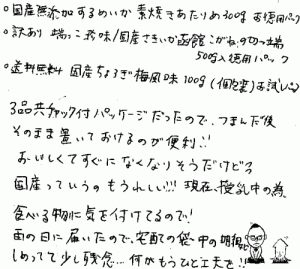 ○国産無添加するめいか 素焼きあたりめ300g お徳用パック
○訳あり 端っこ珍味/国産さきいか函館こがね切つ端
500g入徳用パック
○送料無料 国産ちょろぎ梅風味100g(個包装)お試し
3品共チャック付パッケージだったので、つまんだ後
そのまま置いておけるのが便利!!
おいしくてすぐになくなりそうだけど
国産っていうのもうれしい!!! 現在、授乳中の為、
食べる物に気を付けてるので!
雨の日に届いたので、宅配の袋の中の明細
しめってて少し残念…何かもうひと工夫を!!